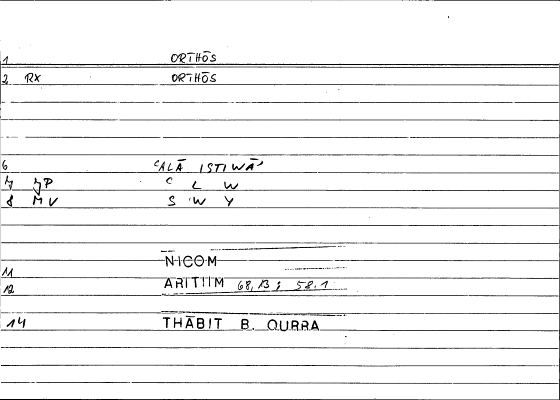 1 ORTHŌS
2 RX ORTHŌS
6 ʿALĀ ISTIWĀʾ
7 JP ʿ L W
8 MV S W Y
NICOM
11
12 ARITIIM 68,13; 58.1
14 THĀBIT B. QURRA